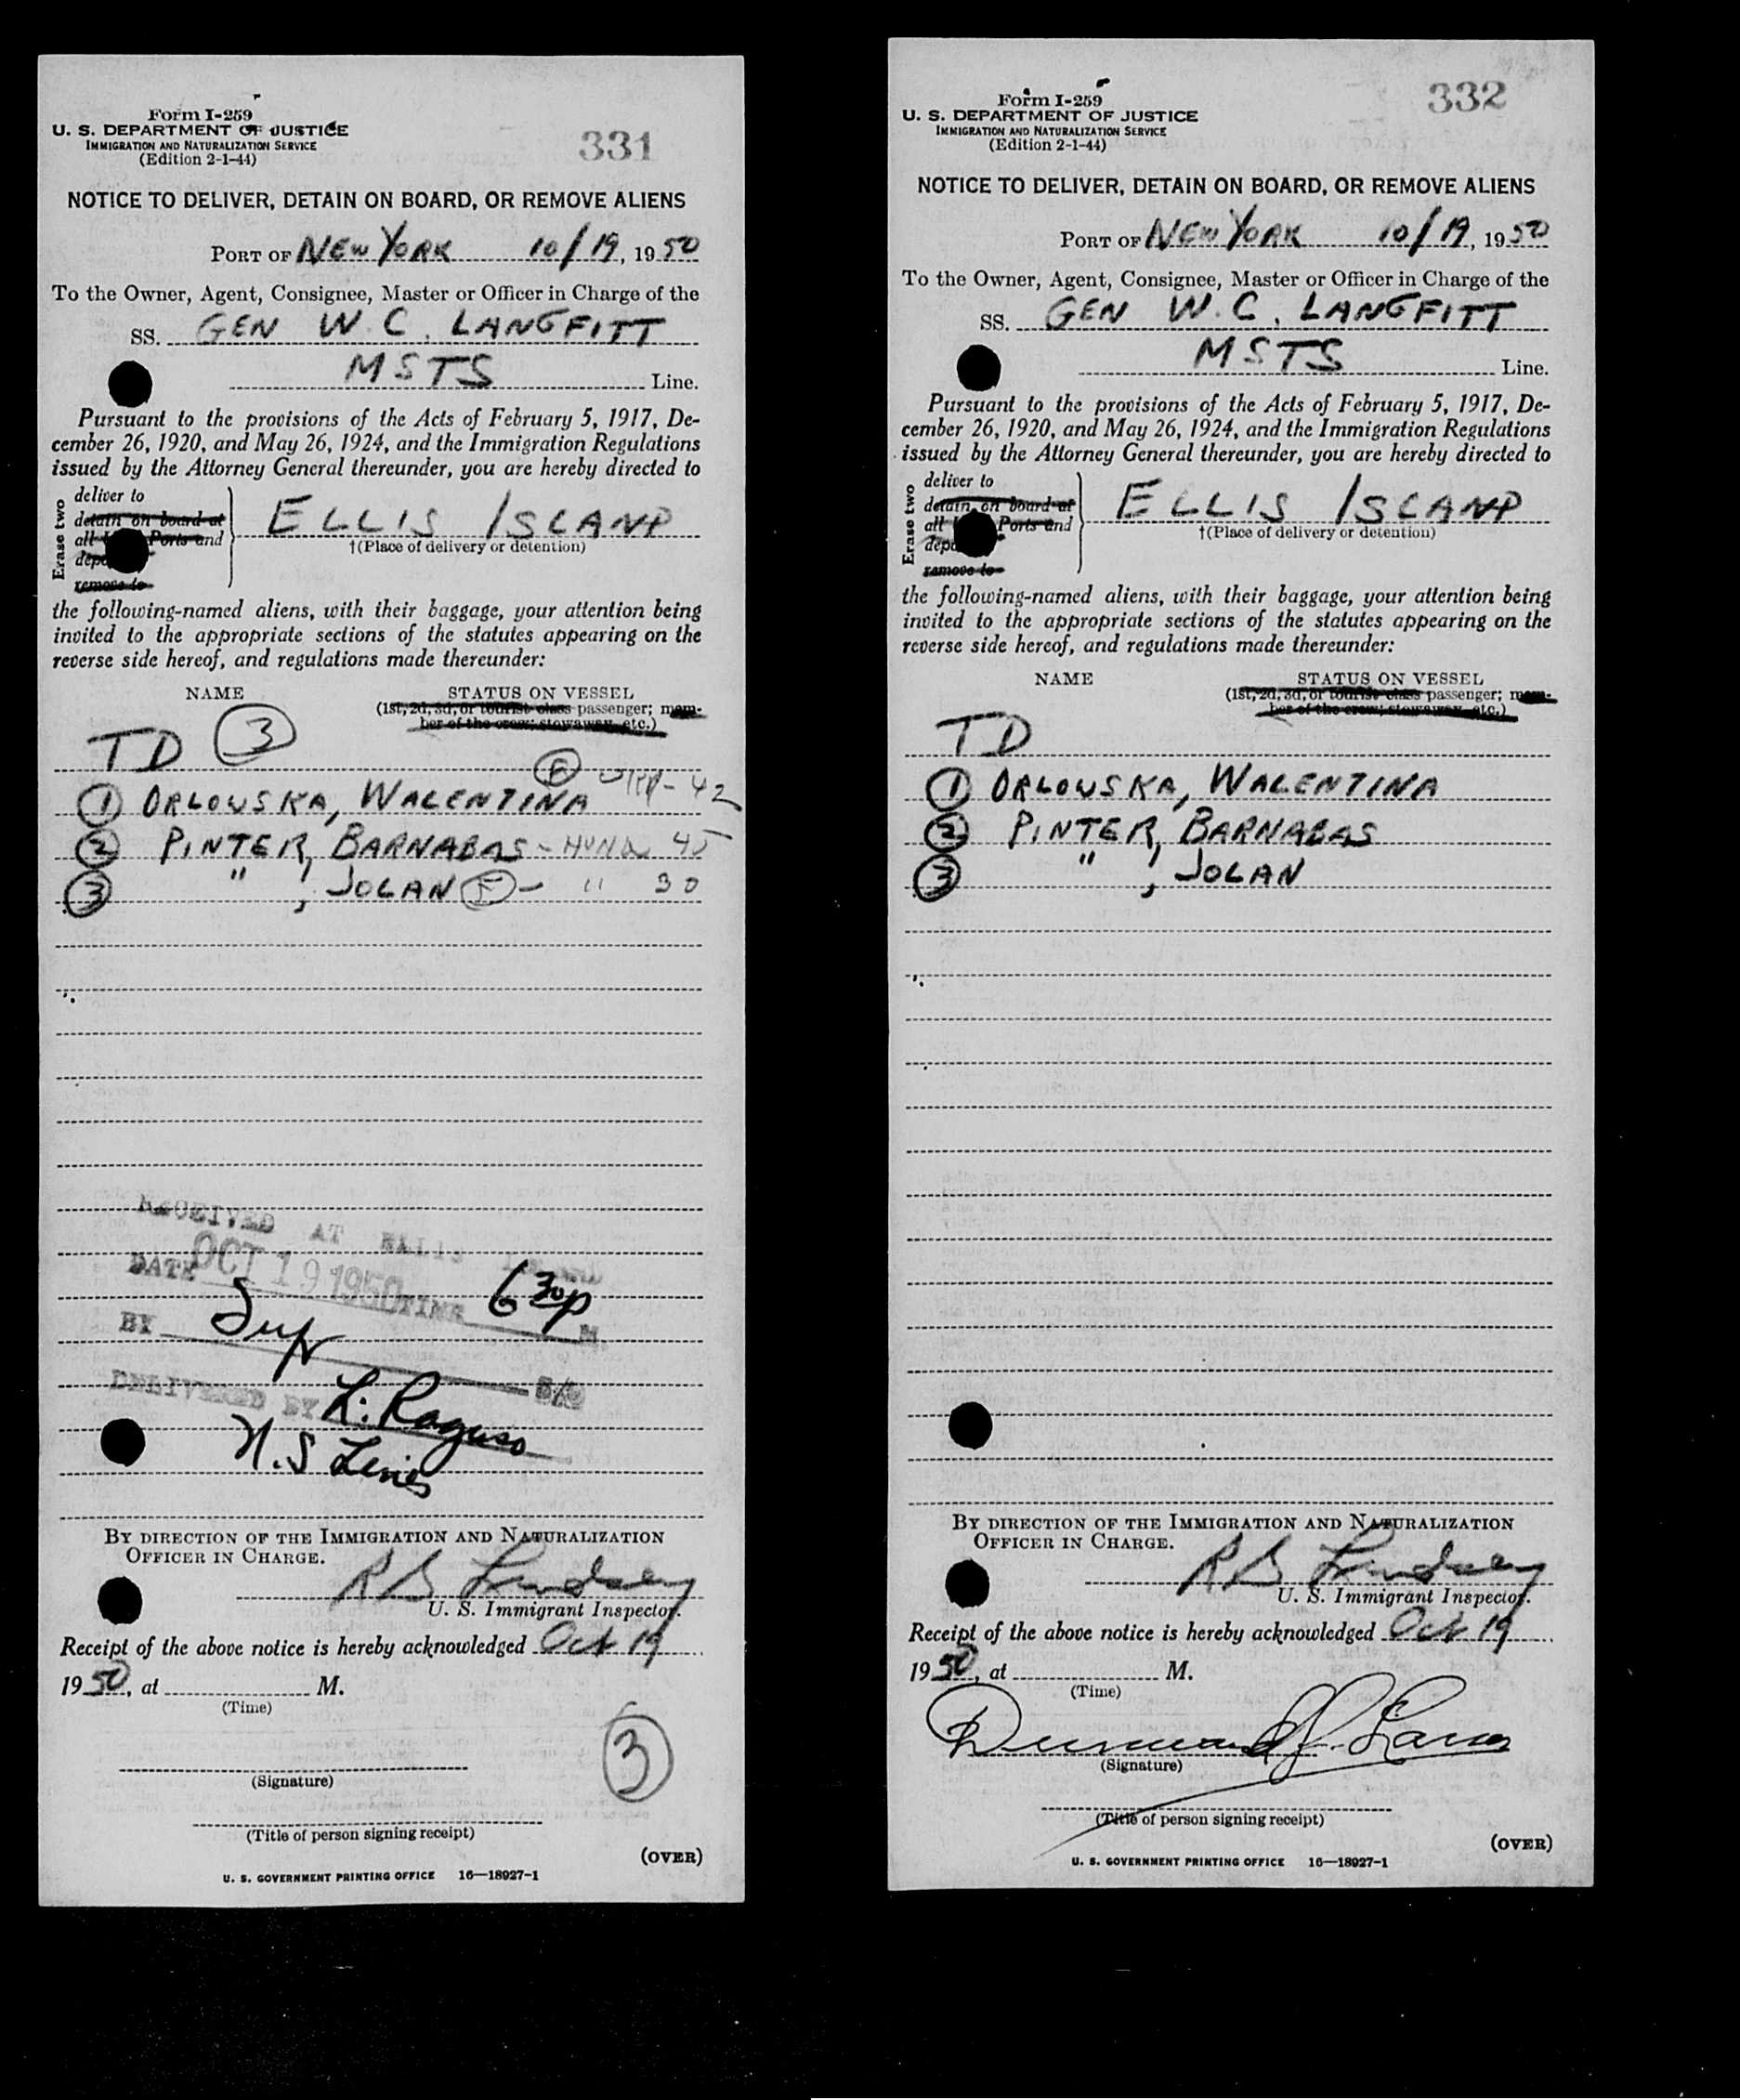 Form I-259
U. S. DEPARTMENT OF JUSTICE
IMMIGRATION AND NATURALIZATION SERVICE
(Edition 2-1-44)
331
NOTICE TO DELIVER, DETAIN ON BOARD, OR REMOVE ALIENS
PORT OF NEW YORK 10/19, 1950
To the Owner, Agent, Consignee, Master or Officer in Charge of the
SS. GEN W. C. LANGFITT
MSTS Line.
Pursuant to the provisions of the Acts of February 5, 1917, De-
cember 26, 1920, and May 26, 1924, and the Immigration Regulations
issued by the Attorney General thereunder, you are hereby directed to
Erase two
deliver to
detain on board at
all Ports and
remove to
ELLIS ISLAND
†(Place of delivery or detention)
the following-named aliens, with their baggage, your attention being
invited to the appropriate sections of the statutes appearing on the
reverse side hereof, and regulations made thereunder:
NAME STATUS ON VESSEL
(1st, 2d, 3d, or tourist class passenger; mem-
ber of the crew; stowaway, etc.)
TD 3
1 ORLOWSKA, WALENTINA F 42
2 PINTER, BARNABAS - HUNG 45
3 " , JOLAN F - " 30
RECEIVED AT ELLIS ISLAND
DATE OCT 19 1950 TIME 6 30 P M.
BY
DELIVERED BY L. Raguso
U.S Lines
BY DIRECTION OF THE IMMIGRATION AND NATURALIZATION
OFFICER IN CHARGE.
R B Lindsey
U. S. Immigrant Inspector.
Receipt of the above notice is hereby acknowledged Oct 19
1950, at M.
(Time)
3
(Signature)
(Title of person signing receipt)
(OVER)
U. S. GOVERNMENT PRINTING OFFICE 16—18927-1
Form I-259
U. S. DEPARTMENT OF JUSTICE
IMMIGRATION AND NATURALIZATION SERVICE
(Edition 2-1-44)
332
NOTICE TO DELIVER, DETAIN ON BOARD, OR REMOVE ALIENS
PORT OF NEW YORK 10/19, 1950
To the Owner, Agent, Consignee, Master or Officer in Charge of the
SS. GEN W. C. LANGFITT
MSTS Line.
Pursuant to the provisions of the Acts of February 5, 1917, De-
cember 26, 1920, and May 26, 1924, and the Immigration Regulations
issued by the Attorney General thereunder, you are hereby directed to
Erase two
deliver to
detain on board at
all Ports and
remove to
ELLIS ISLAND
†(Place of delivery or detention)
the following-named aliens, with their baggage, your attention being
invited to the appropriate sections of the statutes appearing on the
reverse side hereof, and regulations made thereunder:
NAME STATUS ON VESSEL
(1st, 2d, 3d, or tourist class passenger; mem-
ber of the crew; stowaway, etc.)
TD
1 ORLOWSKA, WALENTINA
2 PINTER, BARNABAS
3 " , JOLAN
BY DIRECTION OF THE IMMIGRATION AND NATURALIZATION
OFFICER IN CHARGE.
R B Lindsey
U. S. Immigrant Inspector.
Receipt of the above notice is hereby acknowledged Oct 19
1950, at M.
(Time)
(Signature)
(Title of person signing receipt)
(OVER)
U. S. GOVERNMENT PRINTING OFFICE 16—18927-1